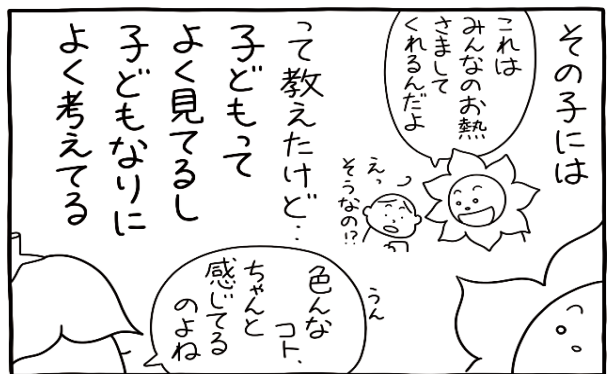 その子には
これは
みんなのお熱
さまして
くれるんだよ
えっ
そうなの!?
って教えたけど…
子どもって
よく見てるし
子どもなりに
よく考えてる
うん
色んな
コト、
ちゃんと
感じてる
のよね